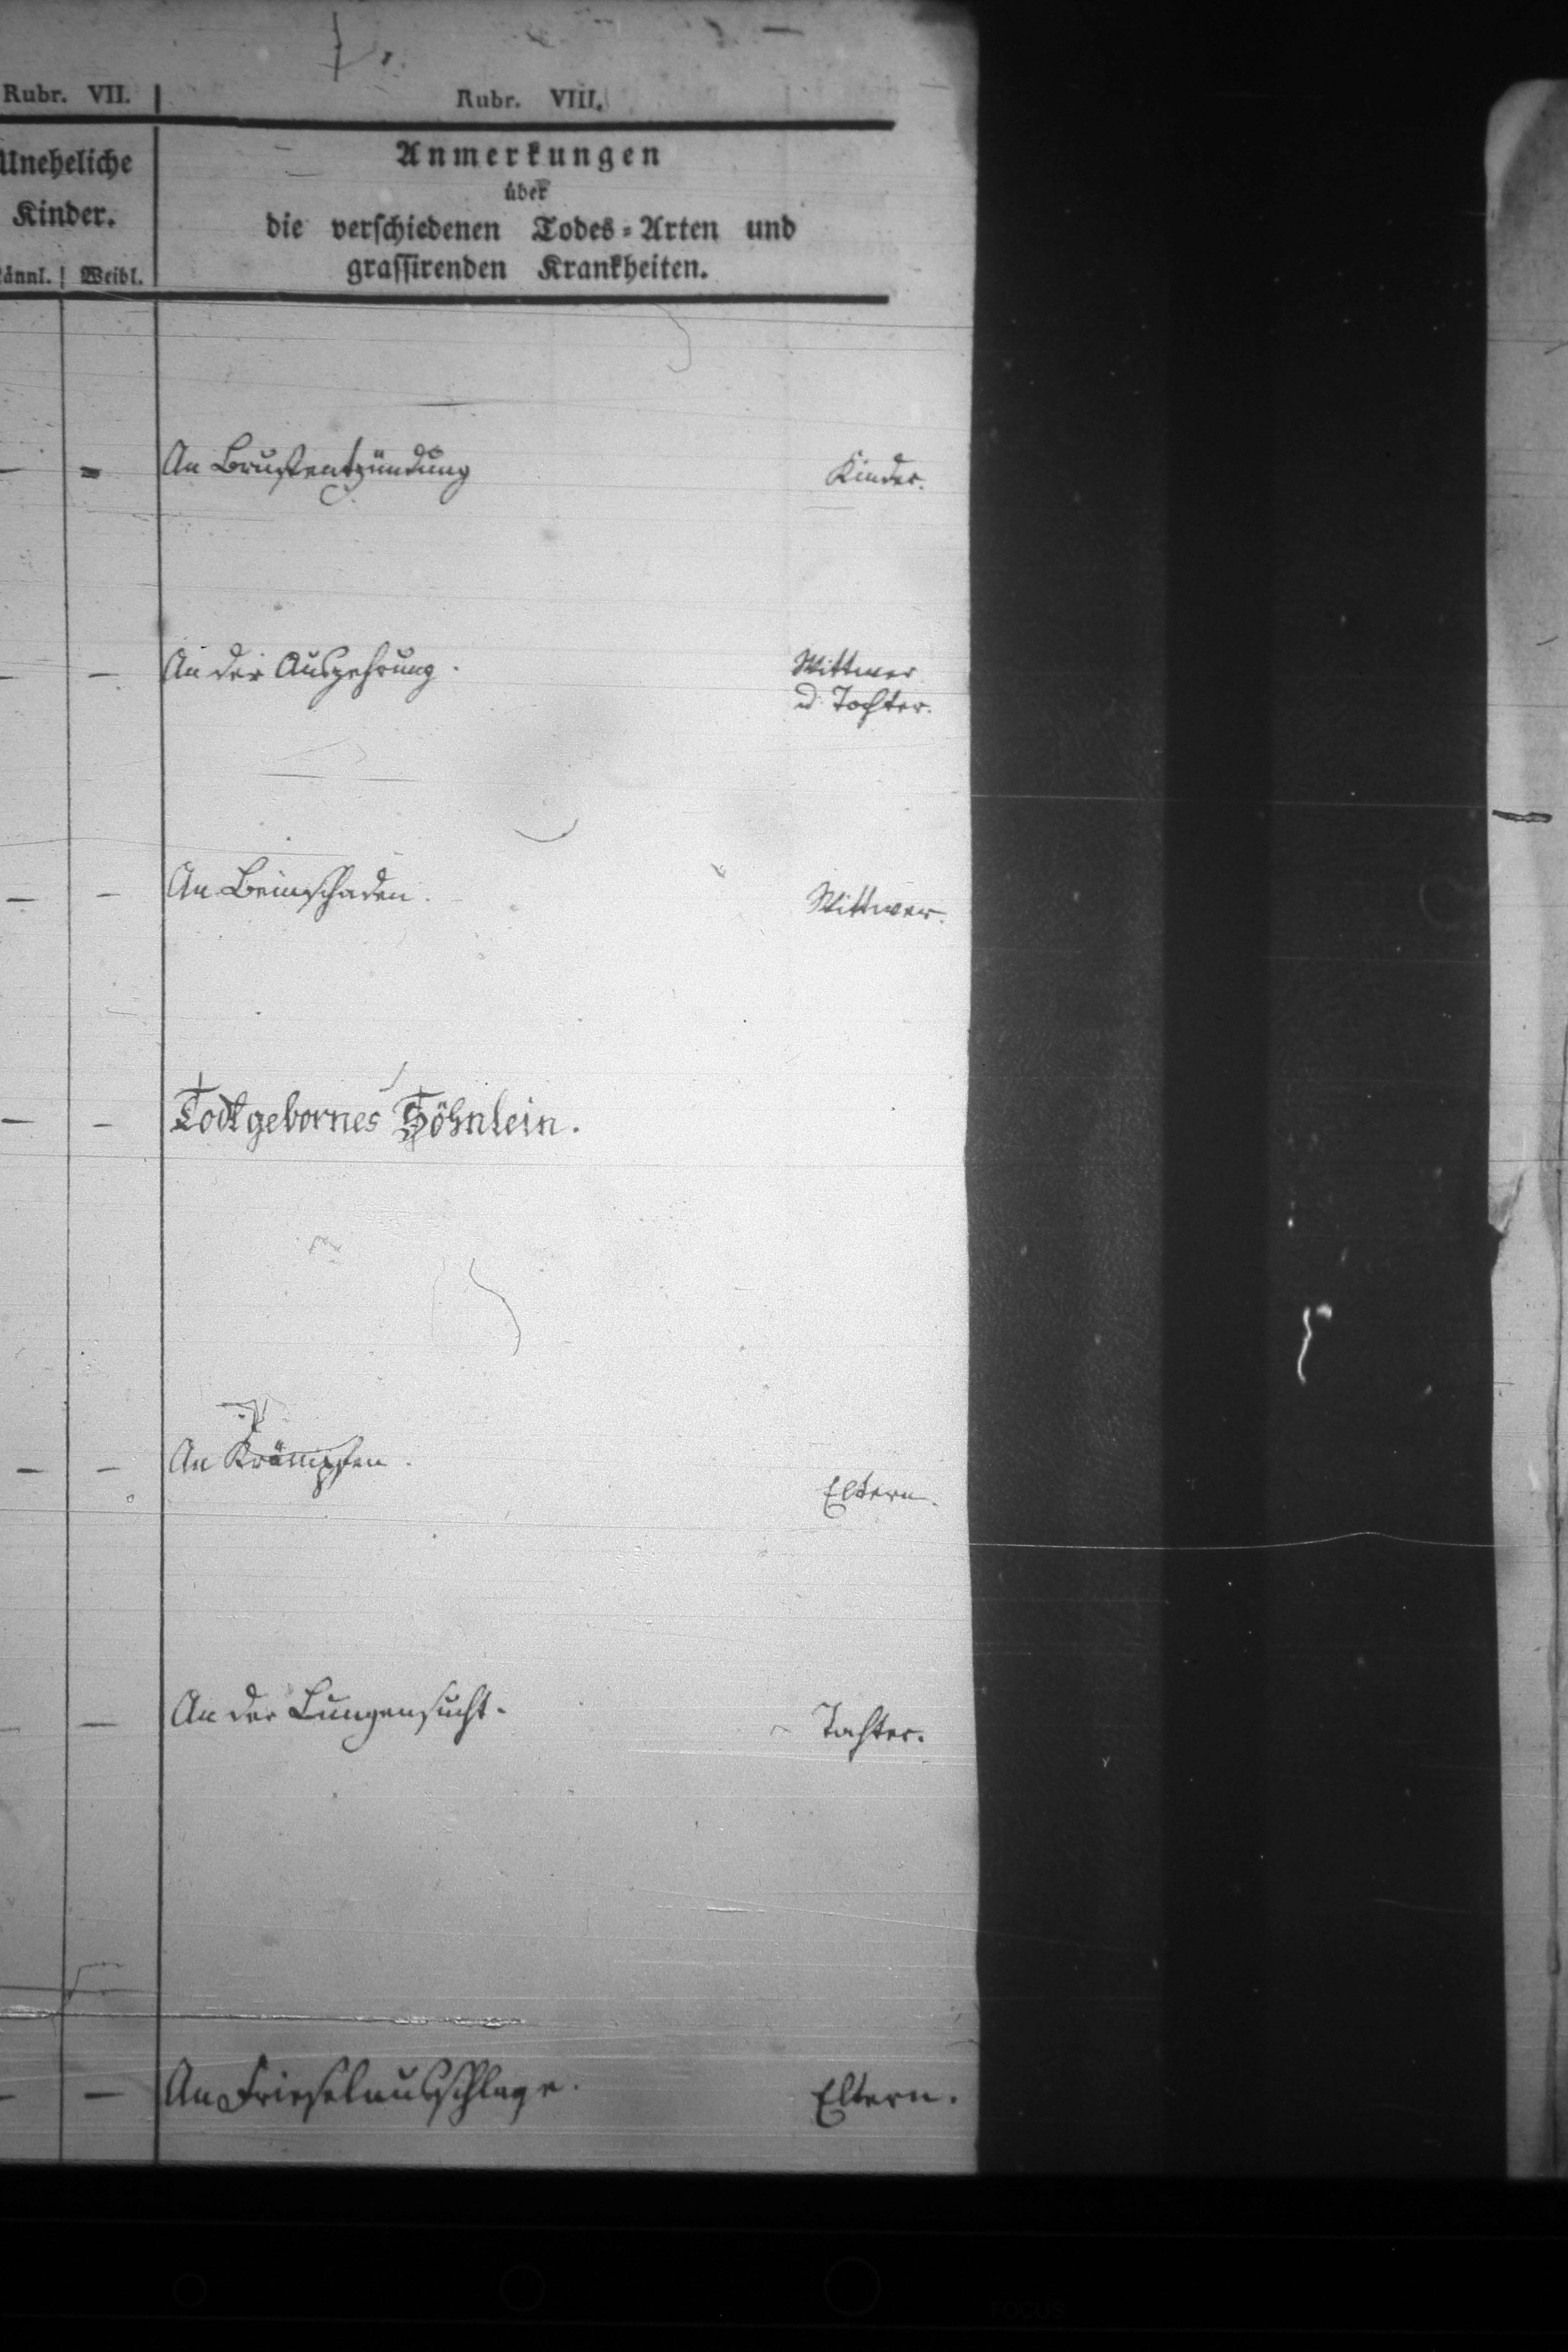 Rubr. VII.
Rubr. VIII.
Uneheliche
Kinder.
Weibl.
Anmerkungen
über
die verschiedenen Todes-Arten und
grassirenden Krankheiten.
- - An Brustentzündung
Kinder.
- - An der Auszehrung.
Wittwer
u Tochter.
- - An Beinschaden.
Wittwer.
- - Todtgebornes Söhnlein.
- - An Krämpfen.
Eltern.
- - An der Lungensucht.
Tochter.
- - An Frieselausschlage.
Eltern.